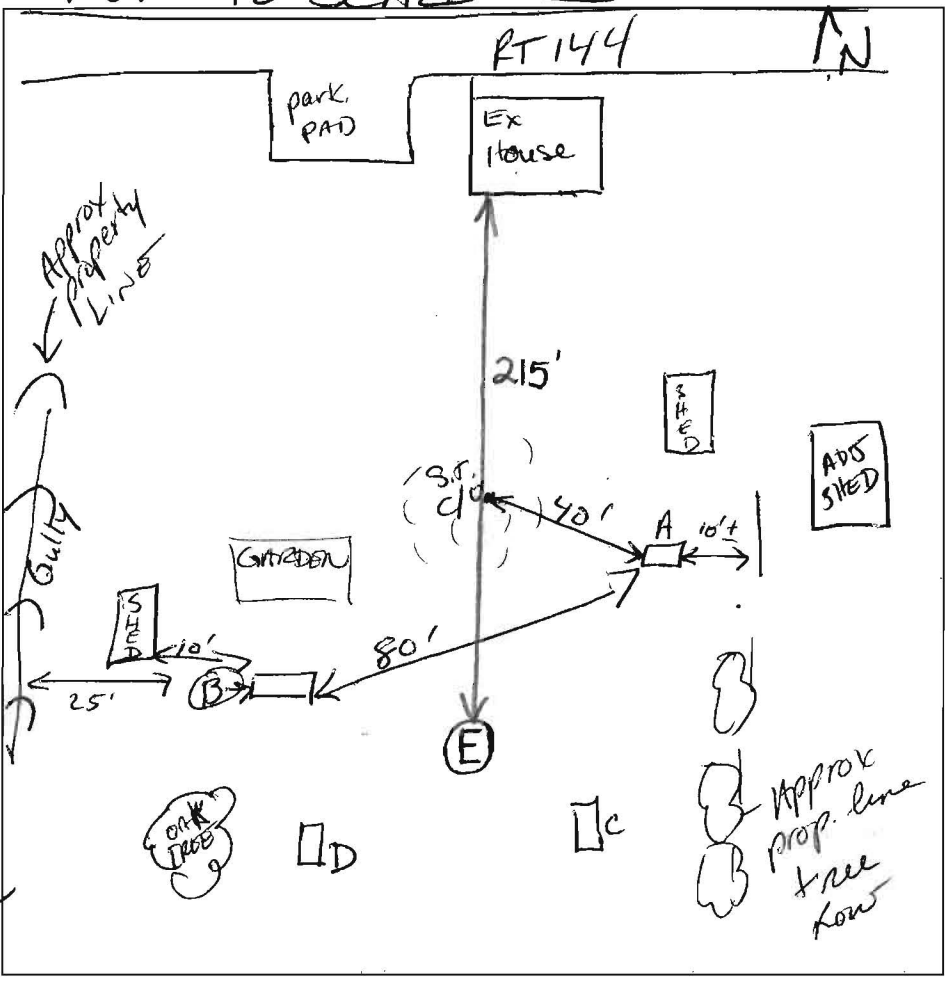 RT 144
N
park.
PAD
Ex
House
Approx
property
LINE
215'
SHED
ADJ
SHED
S.T.
C/O
40'
A
10'±
Gully
GARDEN
SHED
10'
80'
B
25'
E
OAK
TREE
D
C
Approx
prop. line
tree
row